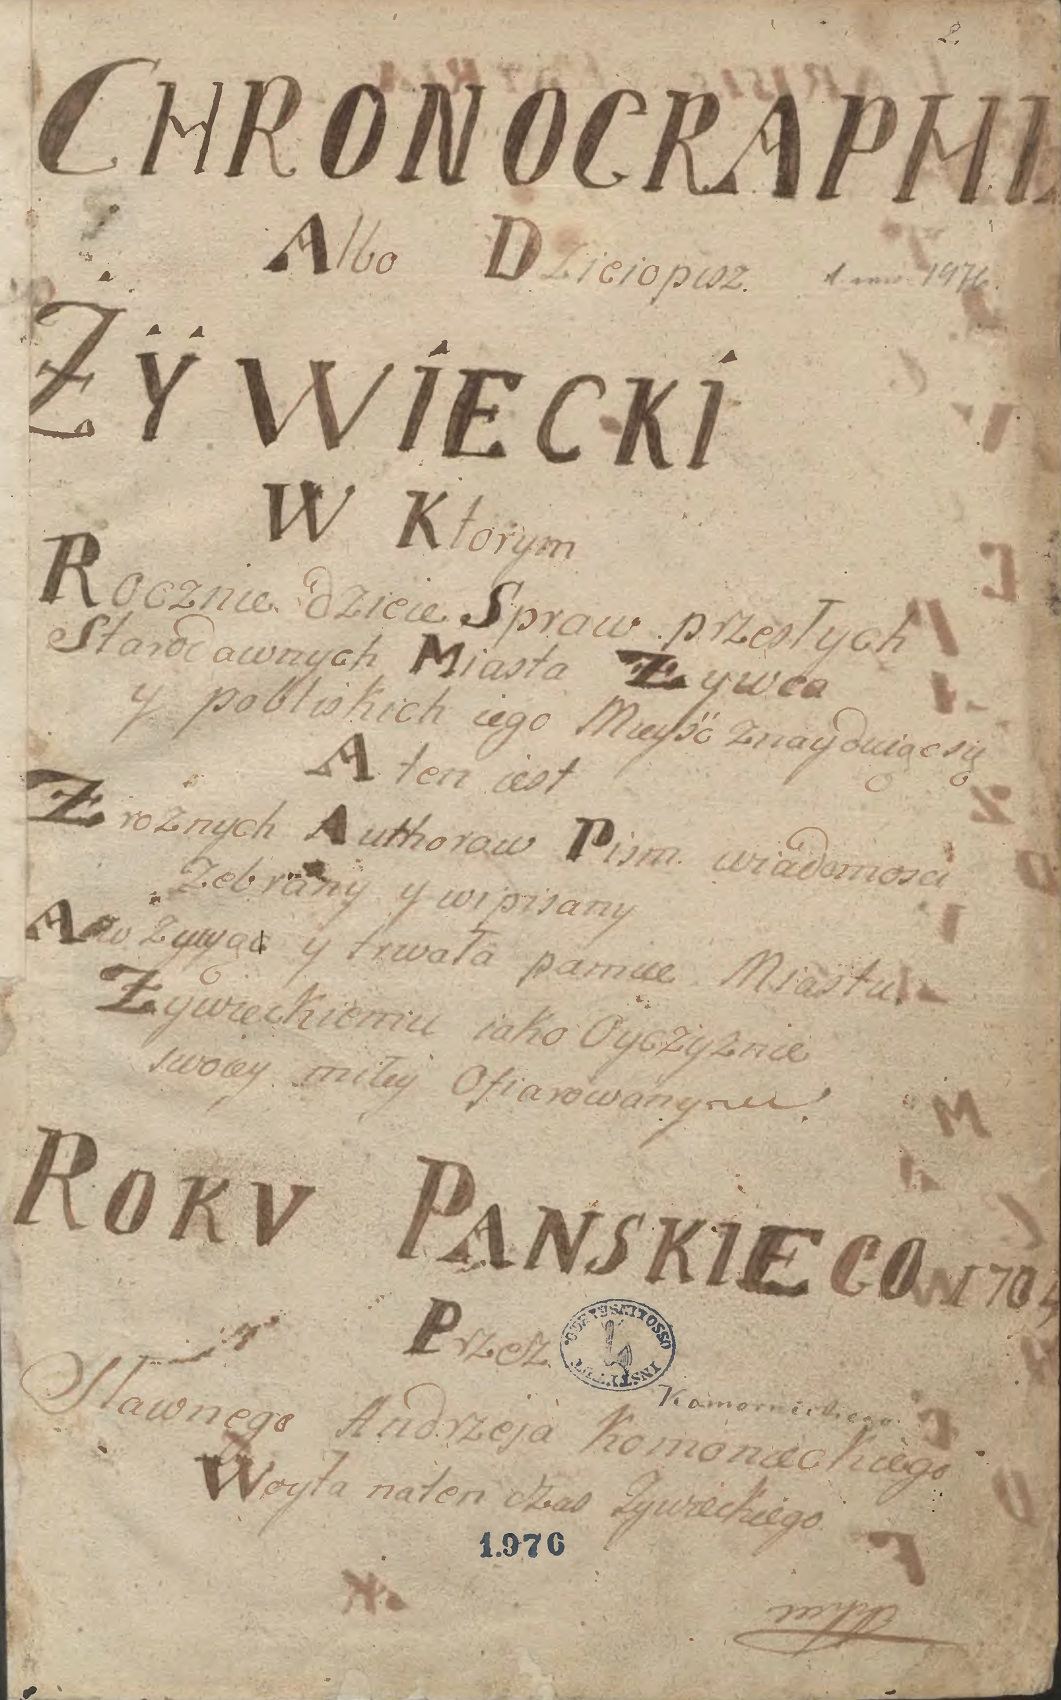 2.
CHRONOGRAPHI
Albo Dzieiopisz.
1976.
ŻŸWIECKI
W Ktorym
Rocznie dzieie Spraw przesłych
Starodawnych Miasta Zywca
y pobliskich iego Mieysc znayduiąc się
A ten iest
Z rożnych Authoraw Pism wiadomosci
Zebrany y wipisany
A w Zywąc y trwała pamiec Miastu
Zywieckiemu iako Oyczyznie
swoiey miłey Ofiarowany
ROKV PANSKIEGO 170
Przesz
INSTYTUT OSSOLIŃSKICH
Komornickiego
Sławnego Andrzeja Komonieckiego
Woyta naten czas Zywieckiego
1.976